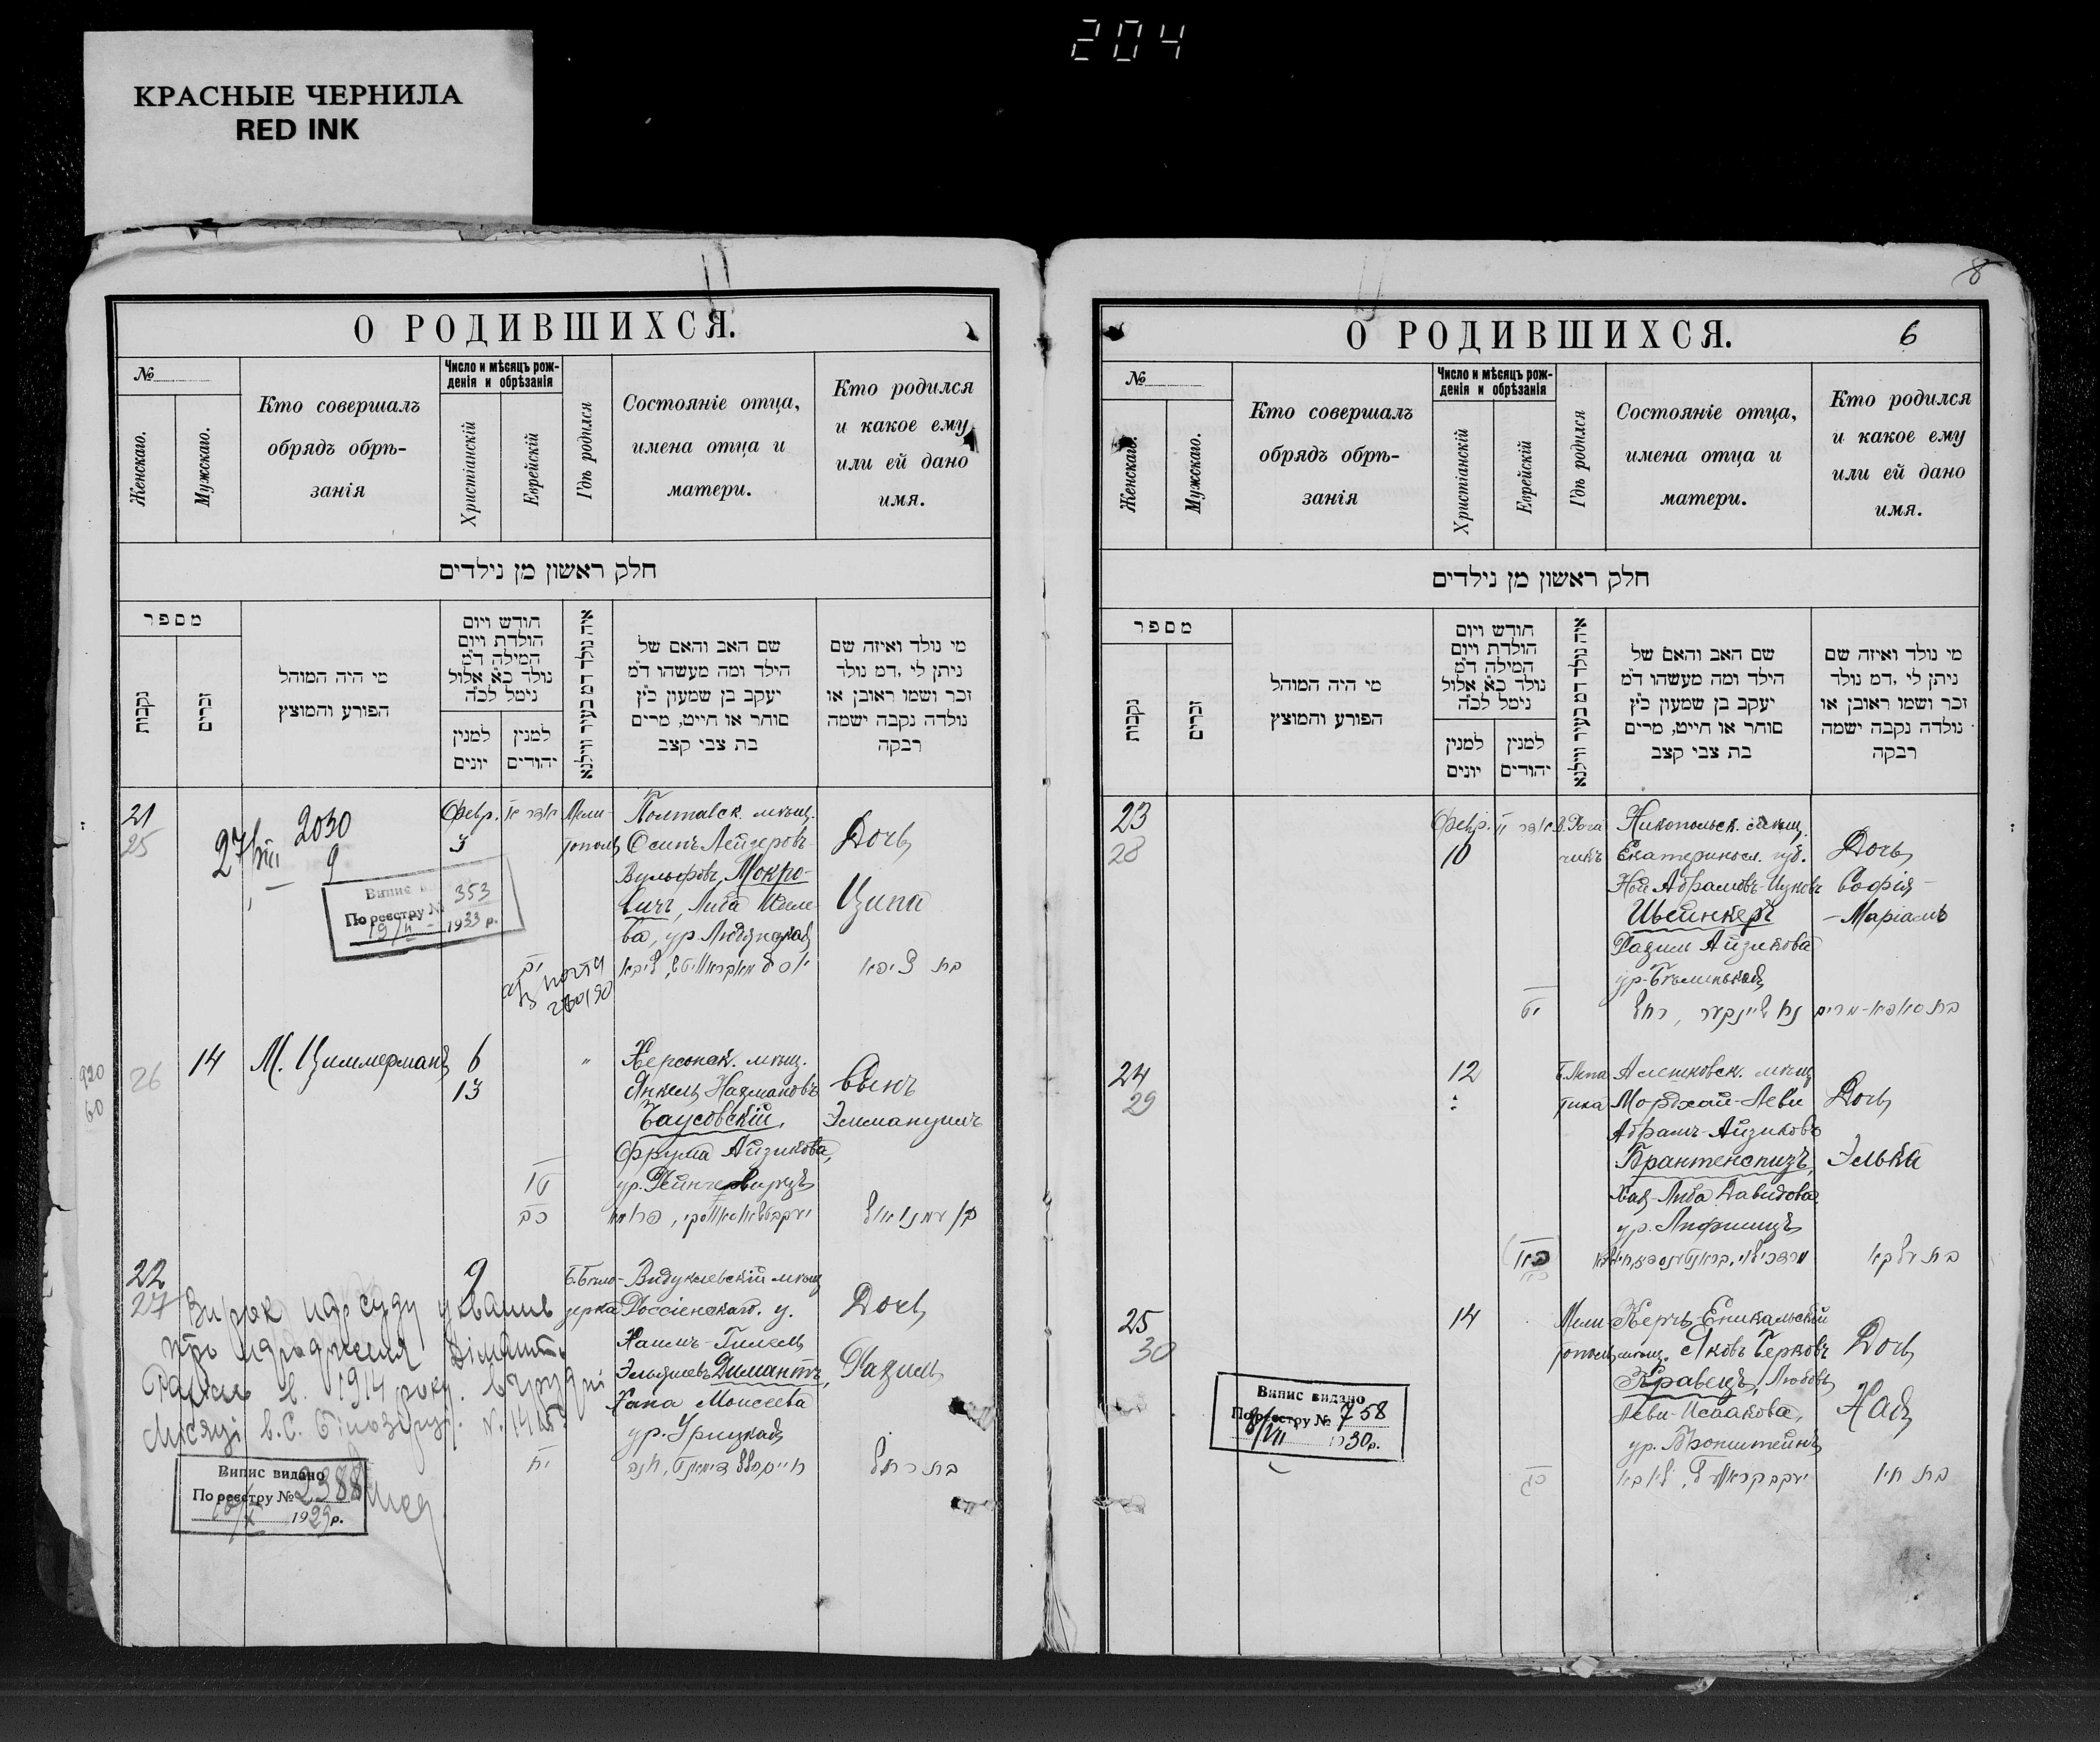 204
КРАСНЫЕ ЧЕРНИЛА
RED INK
О РОДИВШИХСЯ.
№
Женскаго.
Мужскаго.
Кто совершалъ
обрядъ обрѣ-
занія
Число и мѣсяцъ рож-
денія и обрѣзанія
Христіанскій
Еврейскій
Гдѣ родился
Состояніе отца,
имена отца и
матери.
Кто родился
и какое ему
или ей дано
имя.
חלק ראשון מן נילדים
מספר
נקבות
זכרים
מי היה המוהל
הפורע והמוצץ
חודש ויום
הולדת ויום
המילה ד״מ
נולד כ״א אלול
נימל לכ״ה
למנין
יונים
למנין
יהודים
איה נולד דמ בעיר ווילנא
שם האב והאם של
הילד ומה מעשהו ד״מ
יעקב בן שמעון כ״ץ
סוחר או חייט, מרים
בת צבי קצב
מי נולד ואיזה שם
ניתן לי, דמ נולד
זכר ושמו ראובן או
נולדה נקבה ישמה
רבקה
21
25
27/VIII
2030
9
Февр.
3
Мели-
тополь
Полтавск. мѣщ.
Осипъ Лейзеровъ
Вульфовъ Мокро-
вичъ, Люба
ва, ур.
Дочь
Ципа
בת ציפא
Випис
По реестру № 353
1933 р.
920
60
26
14
М. Циммерманъ
6
13
"
Херсонск. мѣщ.
Янкель Нахмановъ
Баусовскій,
Фрума Айзикова,
ур.
Сынъ
Эммануилъ
בן עמנואל
22
27
9
Б. Бѣло-
зерка
Видуклевскій мѣщ.
Россіенскаго у.
Хаимъ-Гилель
Эльяшевъ Димантъ,
Хана Моисеева
ур. Урицкая
Дочь
Рахиль
בת רחל
Вирок нарсуду
про
Рахиль в. 1914 року. в
місяці в с. Білозерці.
Випис видано
По реестру № 2388
1929 р.
8
О РОДИВШИХСЯ.
6
№
Женскаго.
Мужскаго.
Кто совершалъ
обрядъ обрѣ-
занія
Число и мѣсяцъ рож-
денія и обрѣзанія
Христіанскій
Еврейскій
Гдѣ родился
Состояніе отца,
имена отца и
матери.
Кто родился
и какое ему
или ей дано
имя.
חלק ראשון מן נילדים
מספר
נקבות
זכרים
מי היה המוהל
הפורע והמוצץ
חודש ויום
הולדת ויום
המילה ד״מ
נולד כ״א אלול
נימל לכ״ה
למנין
יונים
למנין
יהודים
איה נולד דמ בעיר ווילנא
שם האב והאם של
הילד ומה מעשהו ד״מ
יעקב בן שמעון כ״ץ
סוחר או חייט, מרים
בת צבי קצב
מי נולד ואיזה שם
ניתן לי, דמ נולד
זכר ושמו ראובן או
נולדה נקבה ישמה
רבקה
23
28
Февр.
10
В. Рога
чикъ
Никопольск. мѣщ.
Екатериносл. губ.
Ной Абрамовъ-Ицковъ
Швейнкеръ
Рахиль Айзикова
ур. Бѣленькая
Дочь
Софія-
-Маріамъ
24
29
12
Б. Лепа
тиха
Алешковск. мѣщ.
Мордхай-Леви
Абрамъ-Айзиковъ
Брантенспизъ,
Хая-Люба Давидова
ур. Лифшицъ
Дочь
Элька
בת עלקא
25
30
14
Мели
тополь
Керчь Еникальскій
мѣщ. Яковъ Берковъ
Кравецъ, Любовь
Леви-Исаакова,
ур. Бронштейнъ
Дочь
Хая
בת חיא
Випис видано
По реестру № 758
8/VII 1930 р.